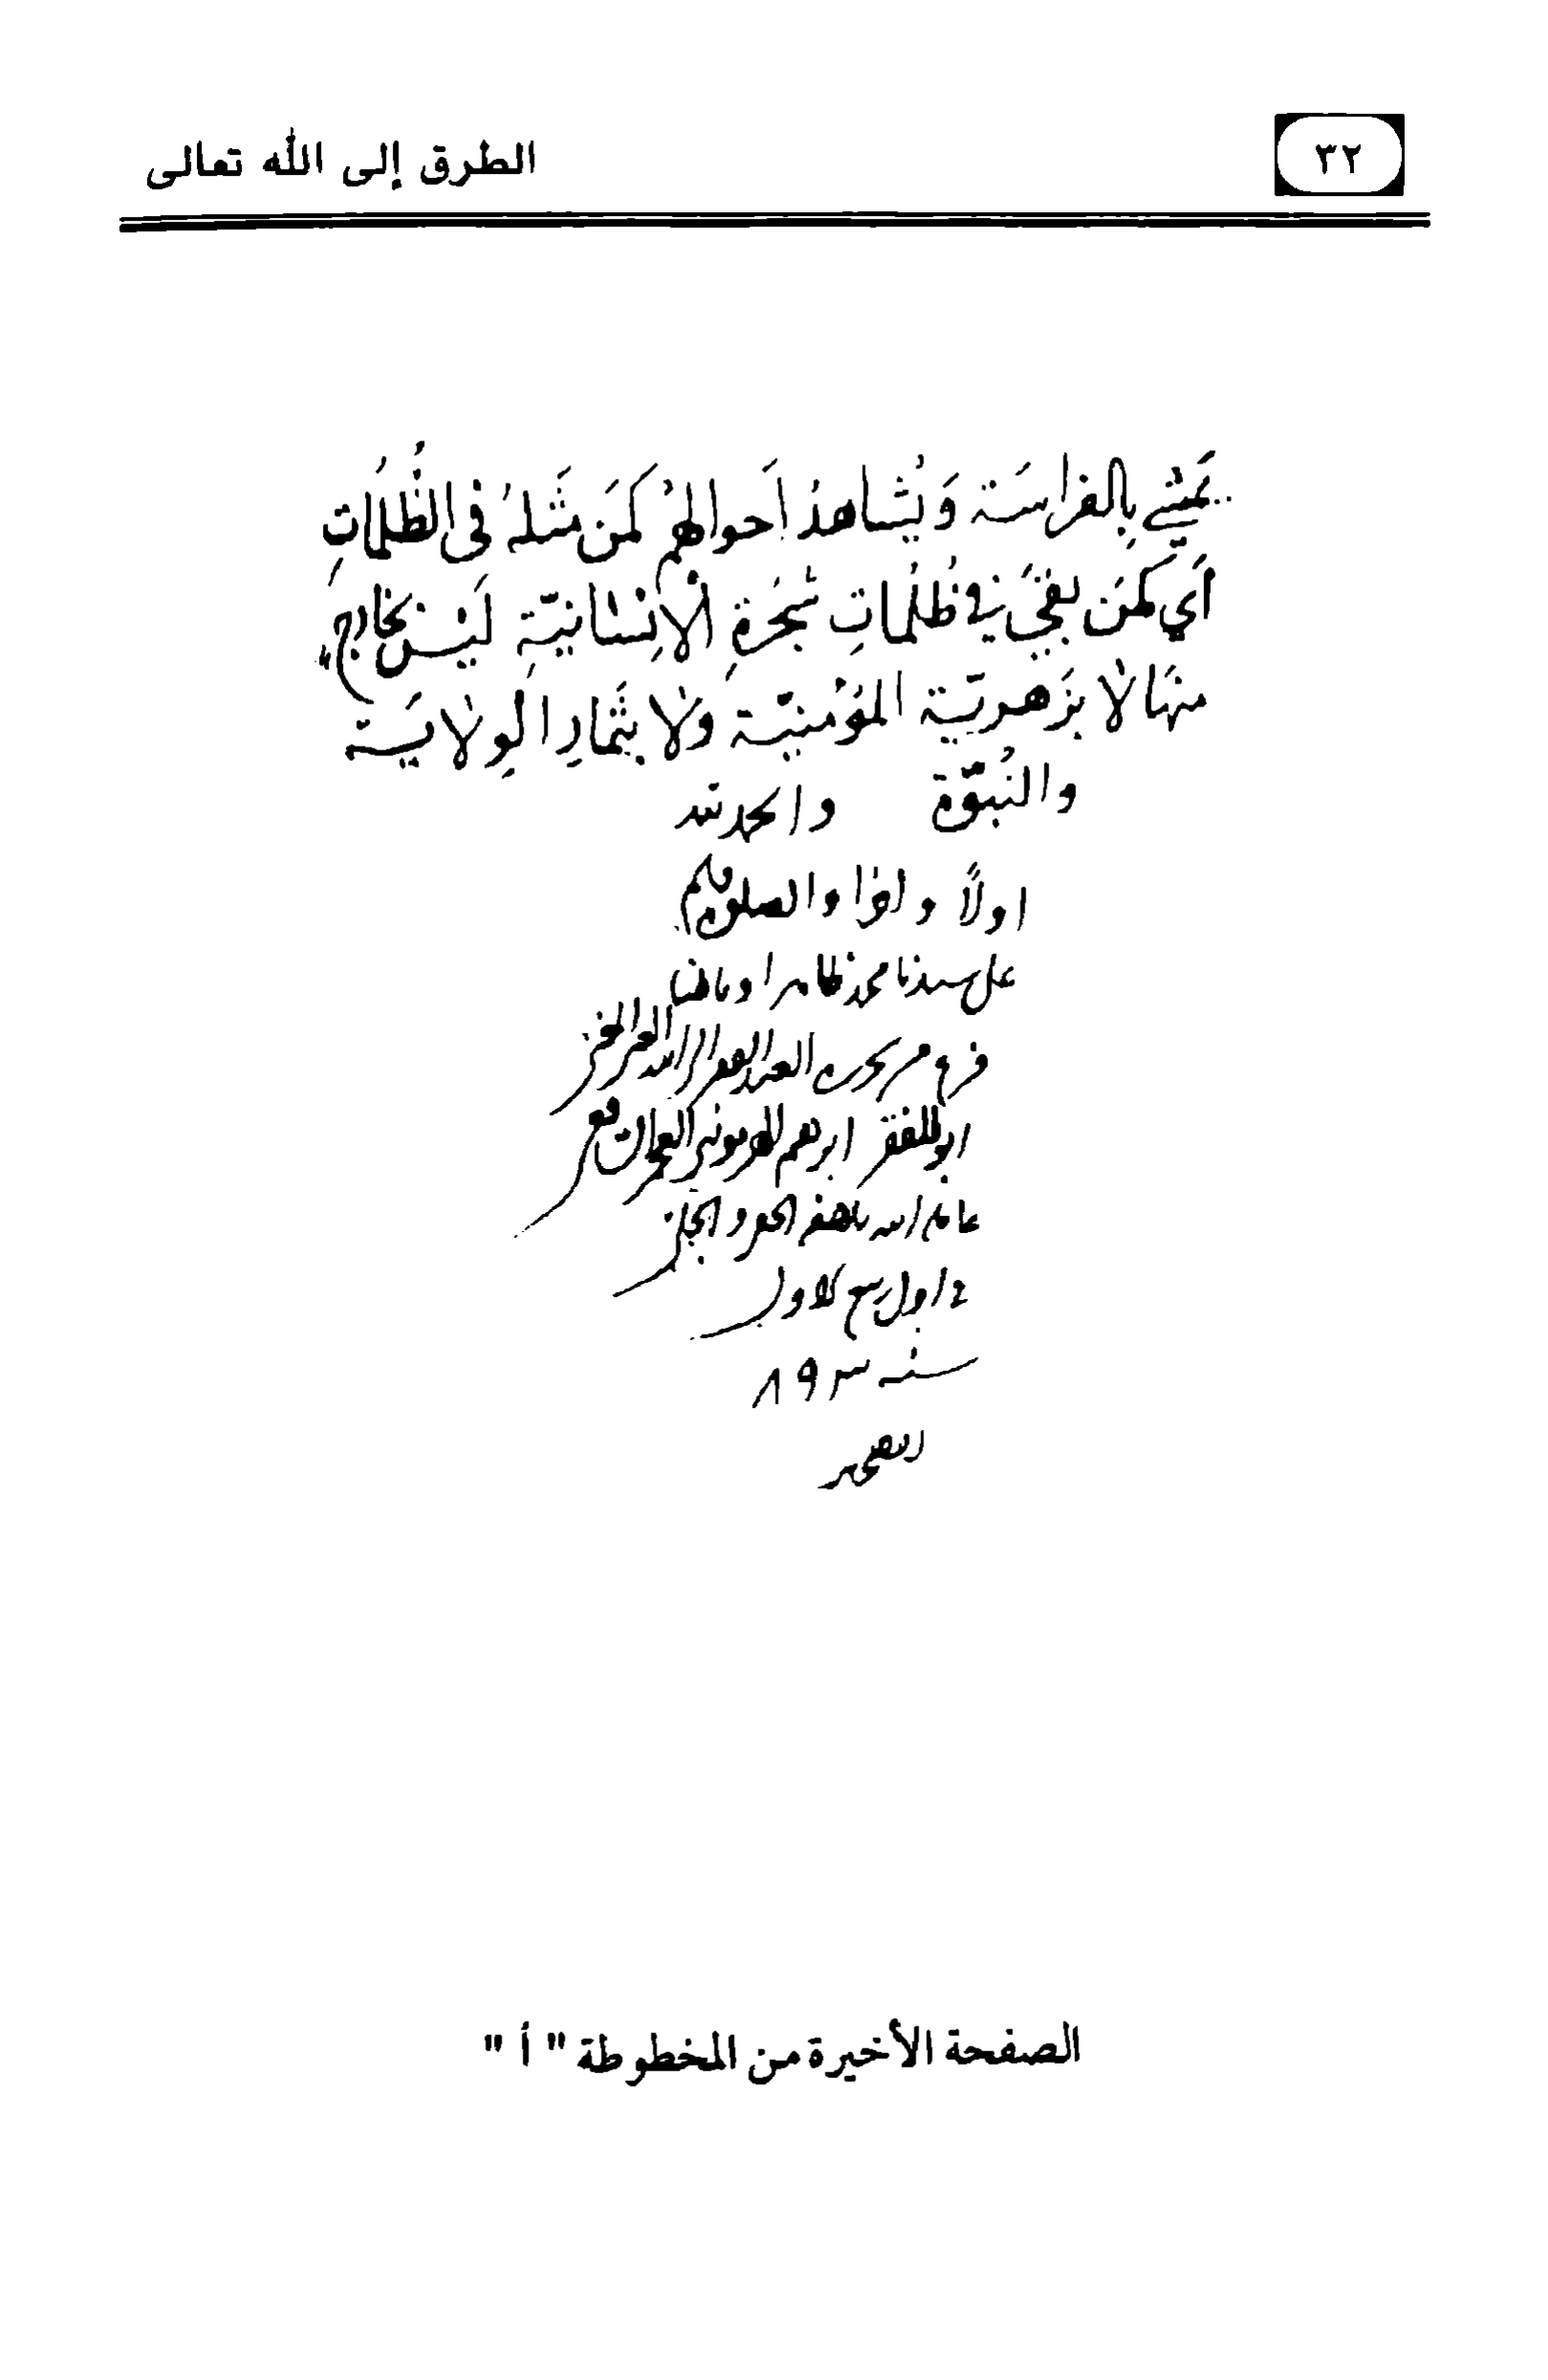 ٣٢
الطرق إلى الله تعالى
يَمشِي بِالفراسَة وَيُشاهدُ اَحوالهُم كَمَن مَثَلهُ فى الظُّلُمَاتِ
اَي كَمَن بقىَ في ظُلُمَاتِ شجَرَةِ الْاِنسَانِيَّةِ لَيسَ بخَارِجٍ
منهَا لا بزَهرِيَّة المؤمنيّة وَلا بِثمَارِ الوِلايَة
والنُبوَّة والحمد لله
اولاً واخرا والصلوة
على سيدنا محمد ظاهرا وباطنا
فرغ من تحريره العبد الفقير الى الله
ابو المظفر ابرهيم
عامله الله بلطفه
في اول ربيع الاول
سنه ٨٩٣
الصفحة الأخيرة من المخطوطة " أ "